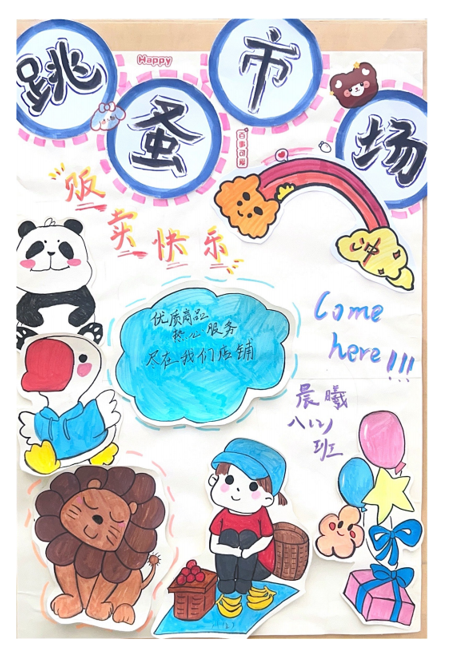 跳蚤市场
Happy
百事可爱
贩卖快乐
冲
优质商品
贴心服务
尽在我们店铺
Come
here!!!
晨曦
八(2)
班